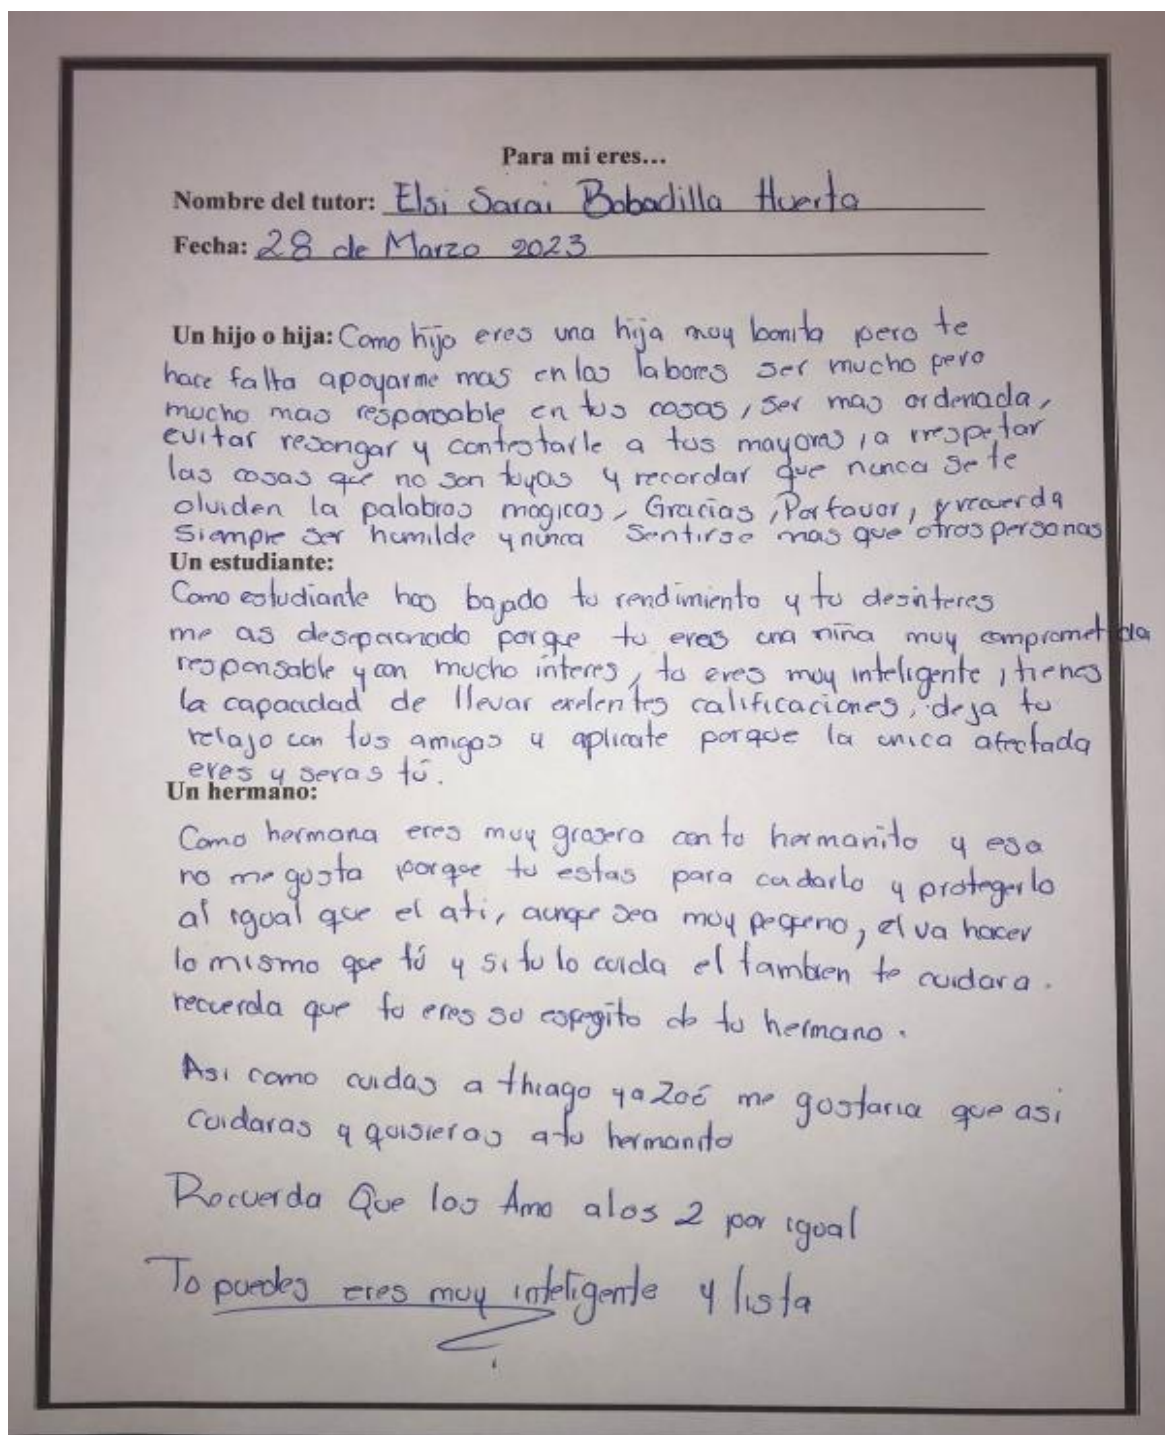 Para mi eres...
Nombre del tutor: Elsi Sarai Bobadilla Huerta
Fecha: 28 de Marzo 2023
Un hijo o hija: Como hijo eres una hija muy bonita pero te
hace falta apoyarme mas en las labores ser mucho pero
mucho mas responsable en tus cosas, ser mas ordenada,
evitar resongar y contestarle a tus mayores, a rrespetar
las cosas que no son tuyas y recordar que nunca se te
olviden la palabras magicas, Gracias, Por favor, y recuerda
Siempre ser humilde y nunca Sentirse mas que otras personas
Un estudiante:
Como estudiante has bajado tu rendimiento y tu desinteres
me as desepcionado porque tu eras una niña muy comprometida
responsable y con mucho interes, tu eres muy inteligente, tienes
la capacidad de llevar exelentes calificaciones, deja tu
relajo con tus amigas y aplicate porque la unica afectada
eres y seras tú.
Un hermano:
Como hermana eres muy grosera con tu hermanito y eso
no me gusta porque tu estas para cuidarlo y protegerlo
al igual que el ati, aunque sea muy pequeno, el va hacer
lo mismo que tú y si tu lo cuida el tambien te cuidara.
recuerda que tu eres su espegito de tu hermano.
Asi como cuidas a thiago ya Zoé me gustaria que asi
cuidaras y quisieras a tu hermanito
Recuerda Que los Amo alos 2 por igual
Tu puedes eres muy inteligente y lista